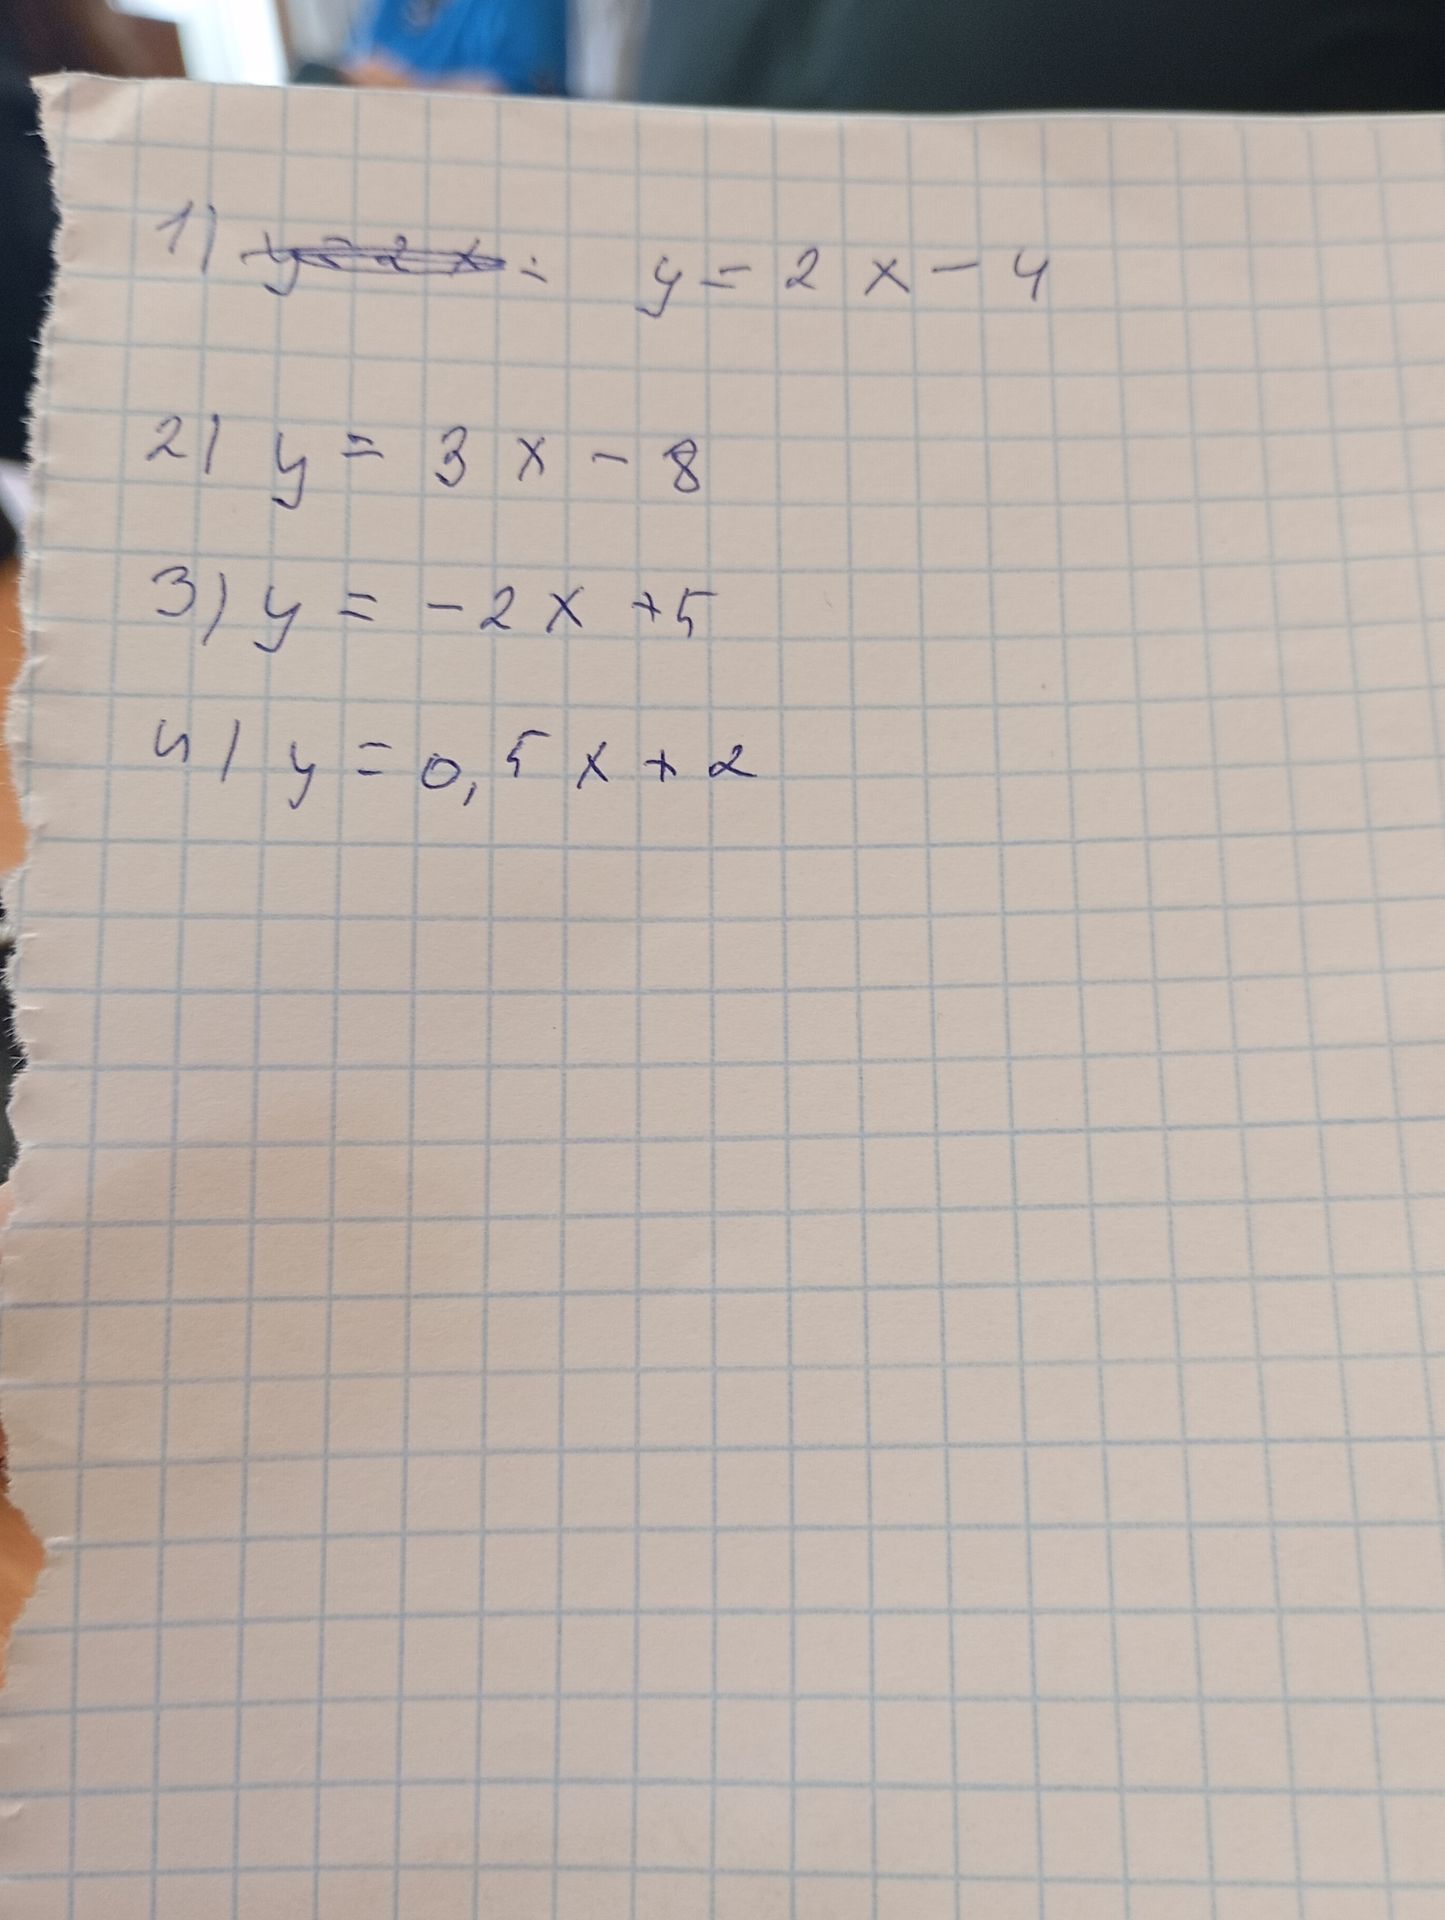 1) y=2x = y = 2x - 4
2) y = 3x - 8
3) y = -2x +5
4) y = 0,5x + 2